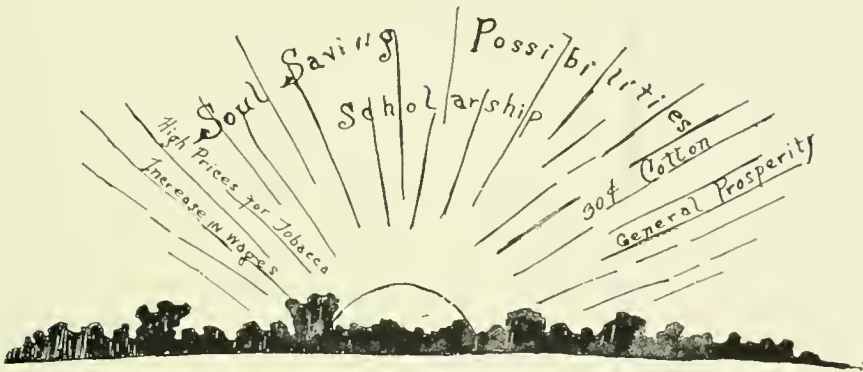 Soul Saving Possibilities
Scholarship
High Prices for Tobacco
Increase IN Wages
30¢ Cotton
General Prosperity